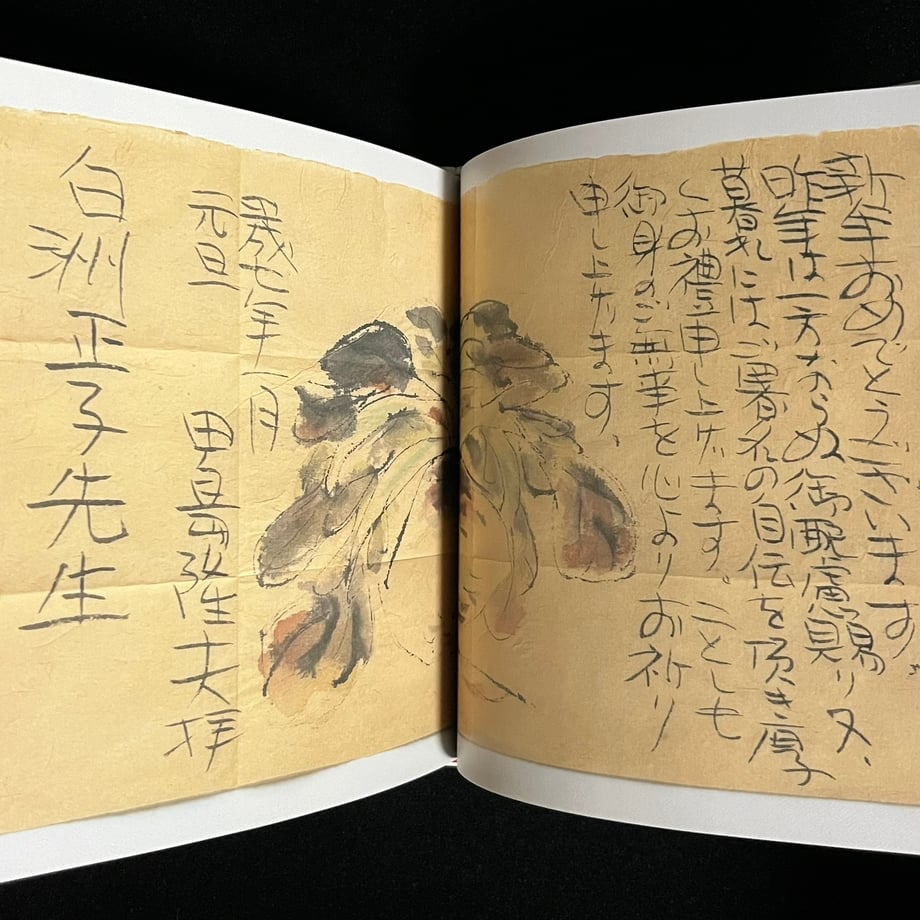 新年おめでとうございます。
昨年は一方ならぬ御配慮賜り又、
暮れにはご署名の自伝を頂き厚
くお禮申し上げます。ことしも
御身のご無事を心よりお祈り
申し上げます、
七年一月
元旦
田島隆夫拝
白洲正子先生